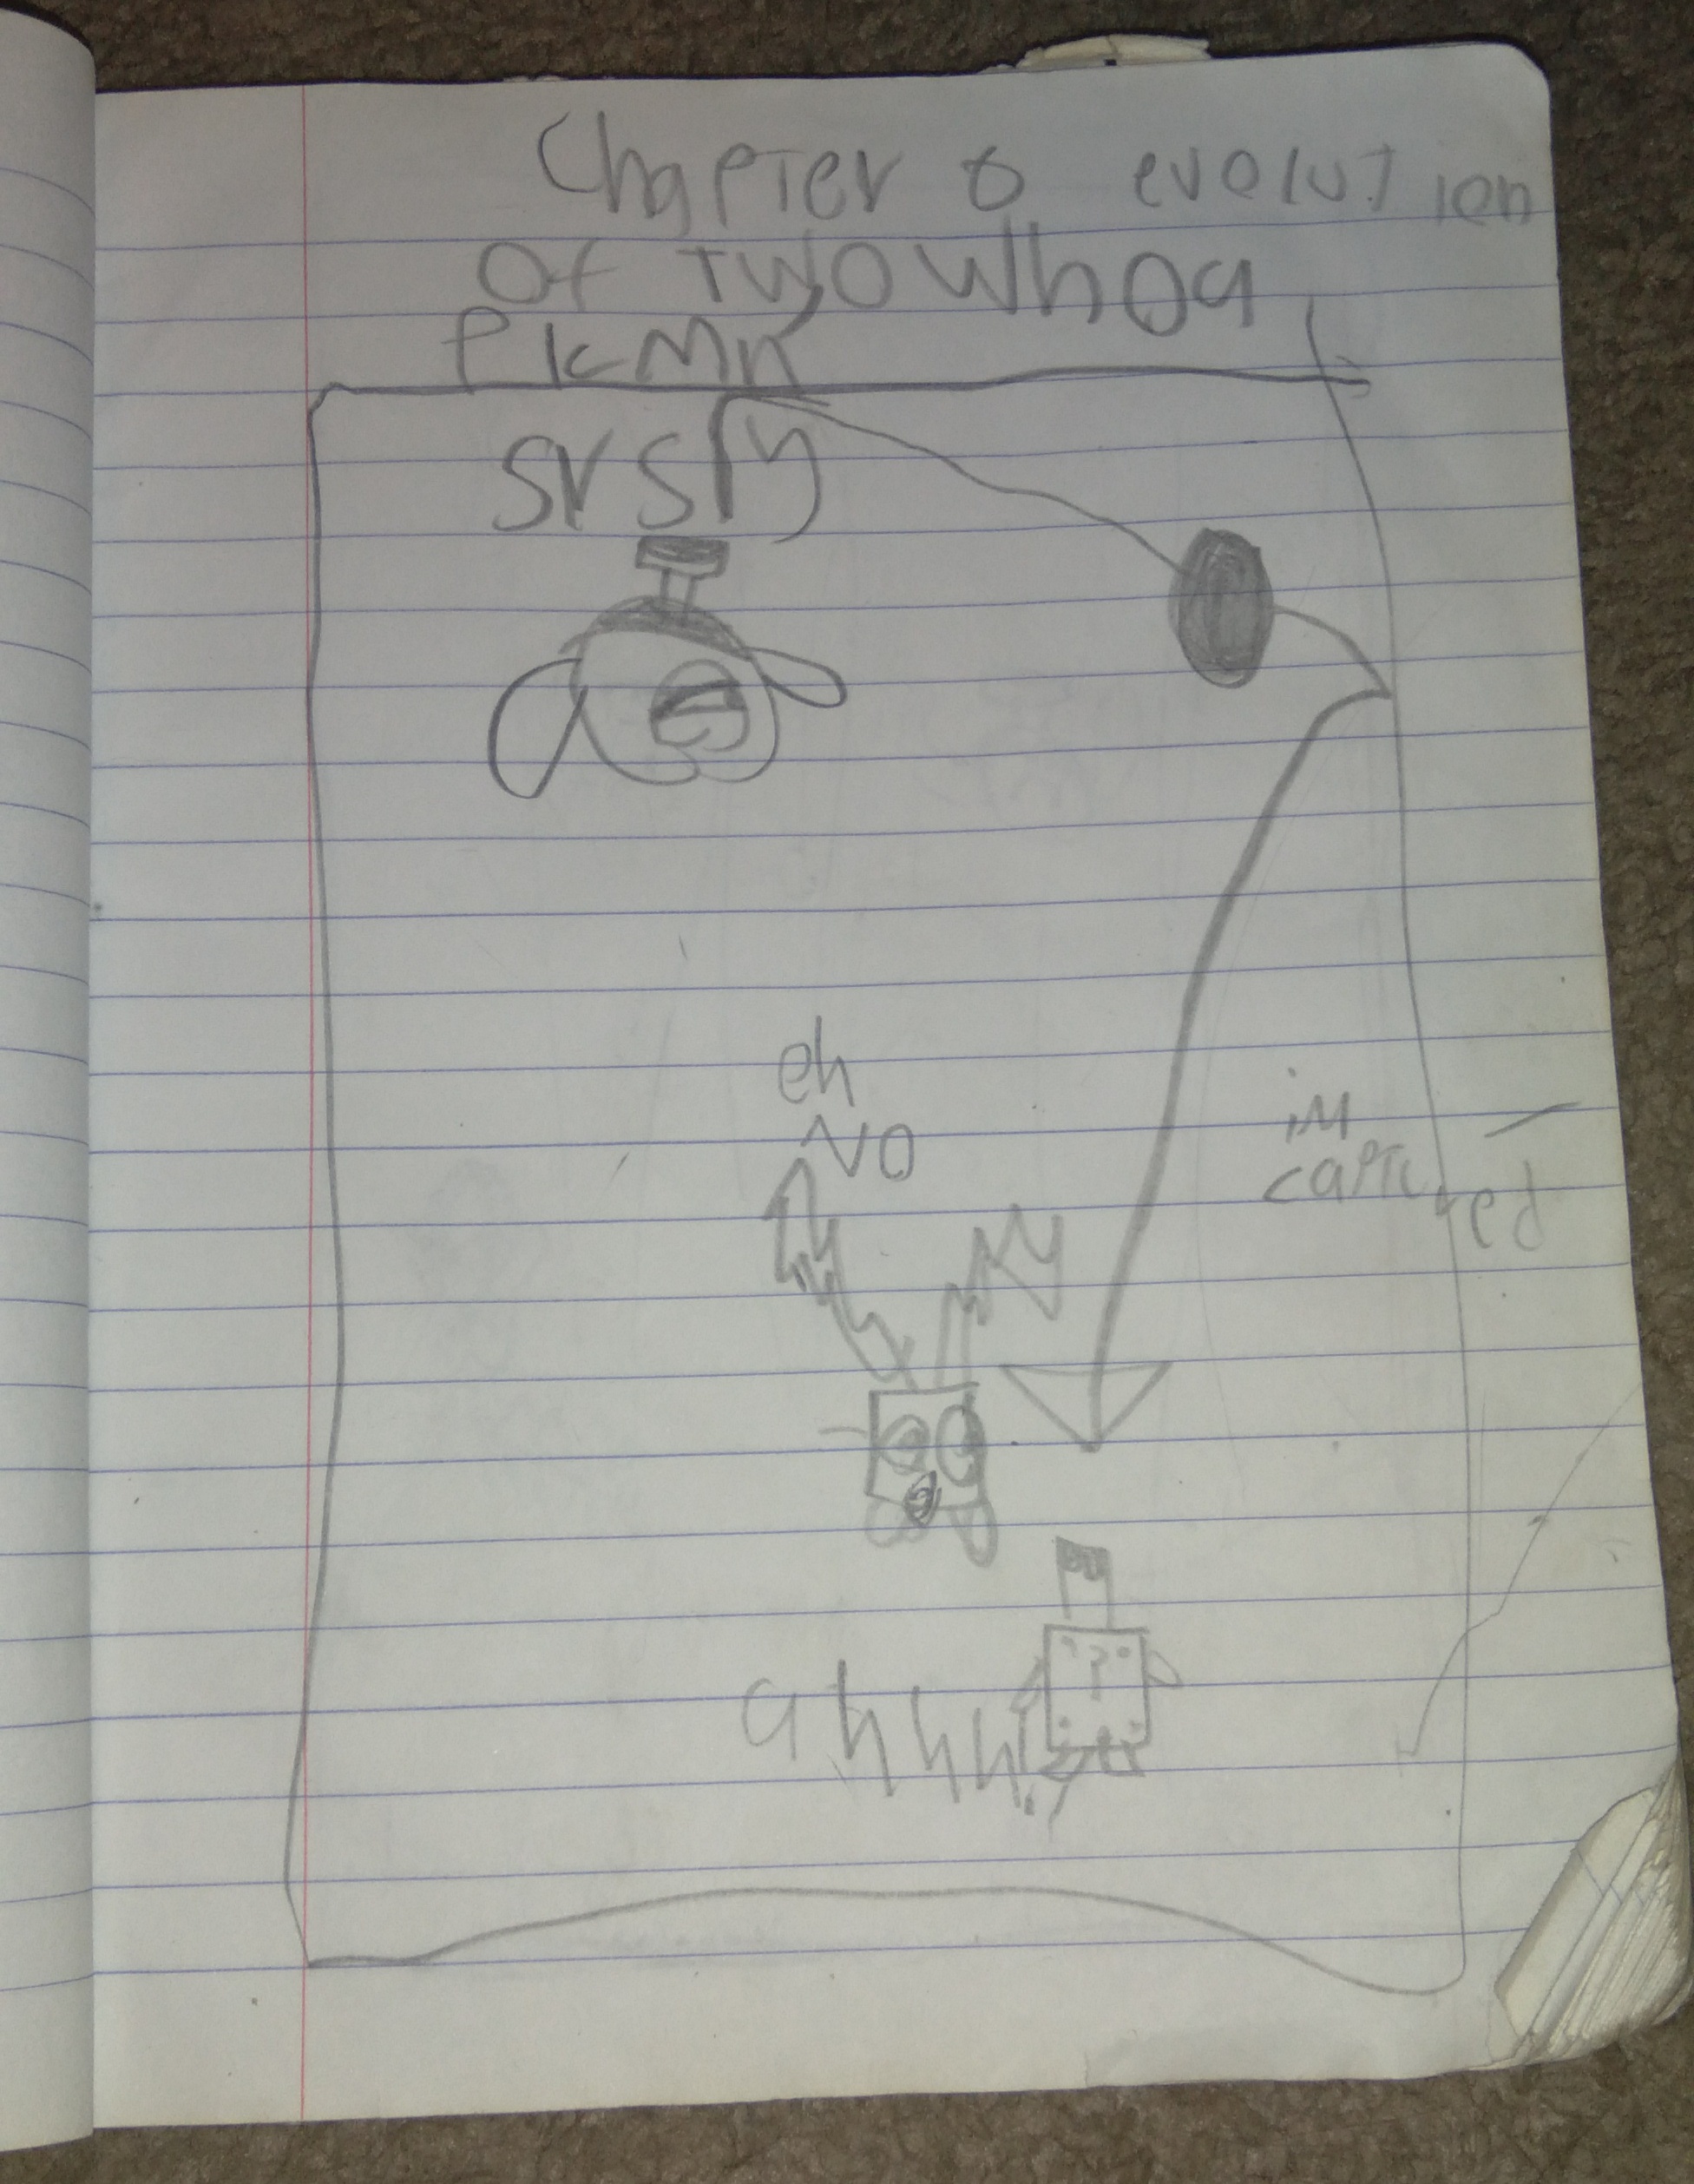 Chapter 6 evolution
Of Two Whoa
PKMN
srsly
eh
NO
im
captured
ahhh!